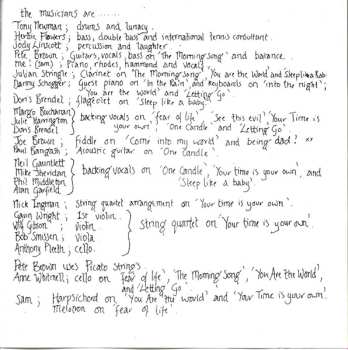 the musicians are ......
Tony Newman; drums and lunacy.
Herbie Flowers; bass, double bass and international tennis consultant.
Jody Linscott; percussion and laughter.
Pete Brown; Guitars, vocals, bass on "The Morning Song" and
me! (sam); Piano, rhodes, hammond and vocals.
Julian Stringle; Clarinet on 'The Morning Song', 'You are the World' and Sleep like a
Danny Schogger; Guest piano on 'In the Rain', and keyboards on 'into the night';
'You are the world' and 'Letting Go'.
Doris Brendel; flageolet on 'Sleep like a baby'.
Margo Buchanan
Julie Harrington
Doris Brendel
backing vocals on 'fear of life', 'See this evil', 'Your Time is
your own'; 'One Candle' and 'Letting Go'.
Joe Brown; fiddle on 'Come into my world' and being dad! xx
Paul Bangash; Acoustic guitar on 'One Candle'.
Neil Gauntlett
Mike Sheridan
Phil Middleton
Alan Garfield
backing vocals on 'One Candle', 'Your time is your own', and
'Sleep like a baby'
Nick Ingman; String quartet arrangement on 'Your time is your own'.
Gavin Wright; 1st violin..
Wilf Gibson; violin
Bob Smissen; viola
Anthony Pleeth; cello.
String quartet on 'Your time is your own'.
Pete Brown uses Picato Strings
Anne Whitnell; cello on 'fear of life', 'The Morning Song', 'You Are the World',
and 'Letting Go'
Sam; Harpsichord on 'You Are the world' and 'Your Time is your own'.
Melodion on 'fear of life'.